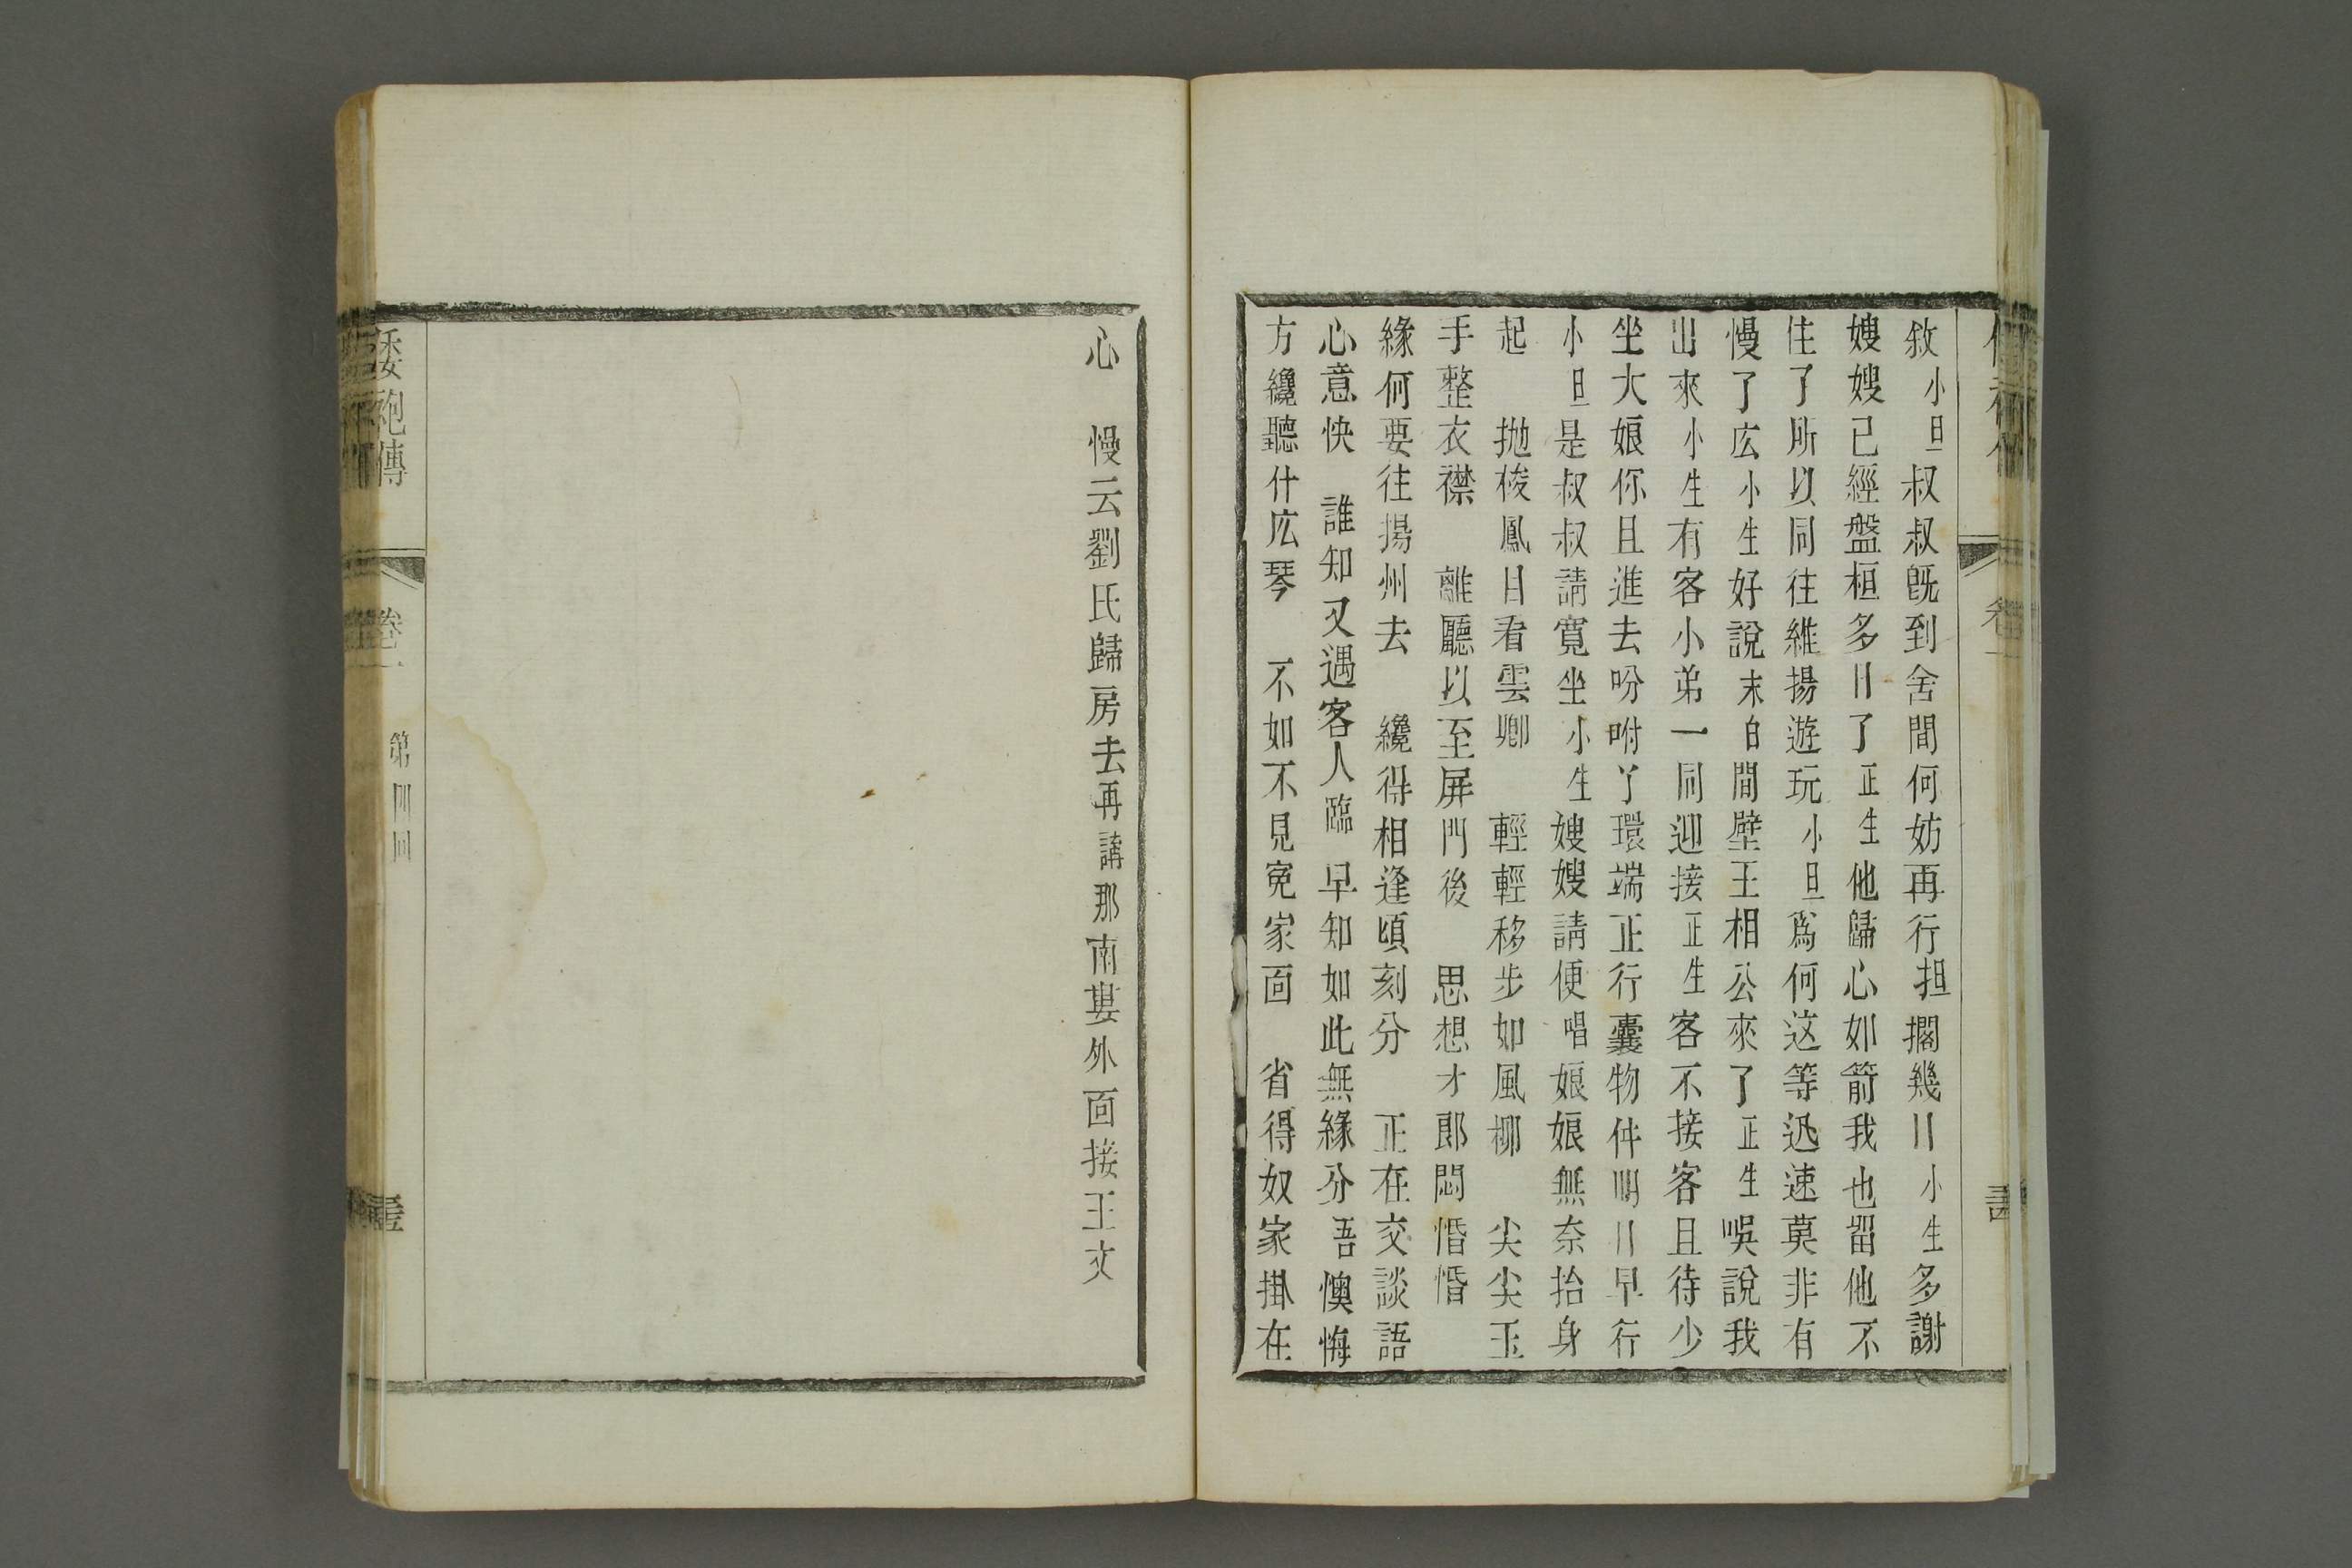 敘小旦叔叔旣到舍間何妨再行担擱幾日小生多謝
嫂嫂已經盤桓多日了正生他歸心如箭我也畱他不
住了所以同往維揚遊玩小旦爲何这等迅速莫非有
慢了広小生好說末白間壁王相公來了正生唉說我
出來小生有客小弟一同迎接正生客不接客且待少
坐大娘你且進去吩咐丫環端正行囊物件明日早行
小旦是叔叔請寬坐小生嫂嫂請便唱娘娘無奈抬身
起　抛梭鳳目看雲卿　輕輕移步如風柳　尖尖玉
手整衣襟　離廳以至屏門後　思想才郎悶惛惛
緣何要往揚州去　纔得相逢頃刻分　正在交談語
心意快　誰知又遇客人臨　早知如此無緣分　吾懊悔
方纔聽什広琴　不如不見寃家面　省得奴家掛在
卷一
心　慢云劉氏歸房去再講那南婁外面接王文
倭袍傳　卷一　第四回